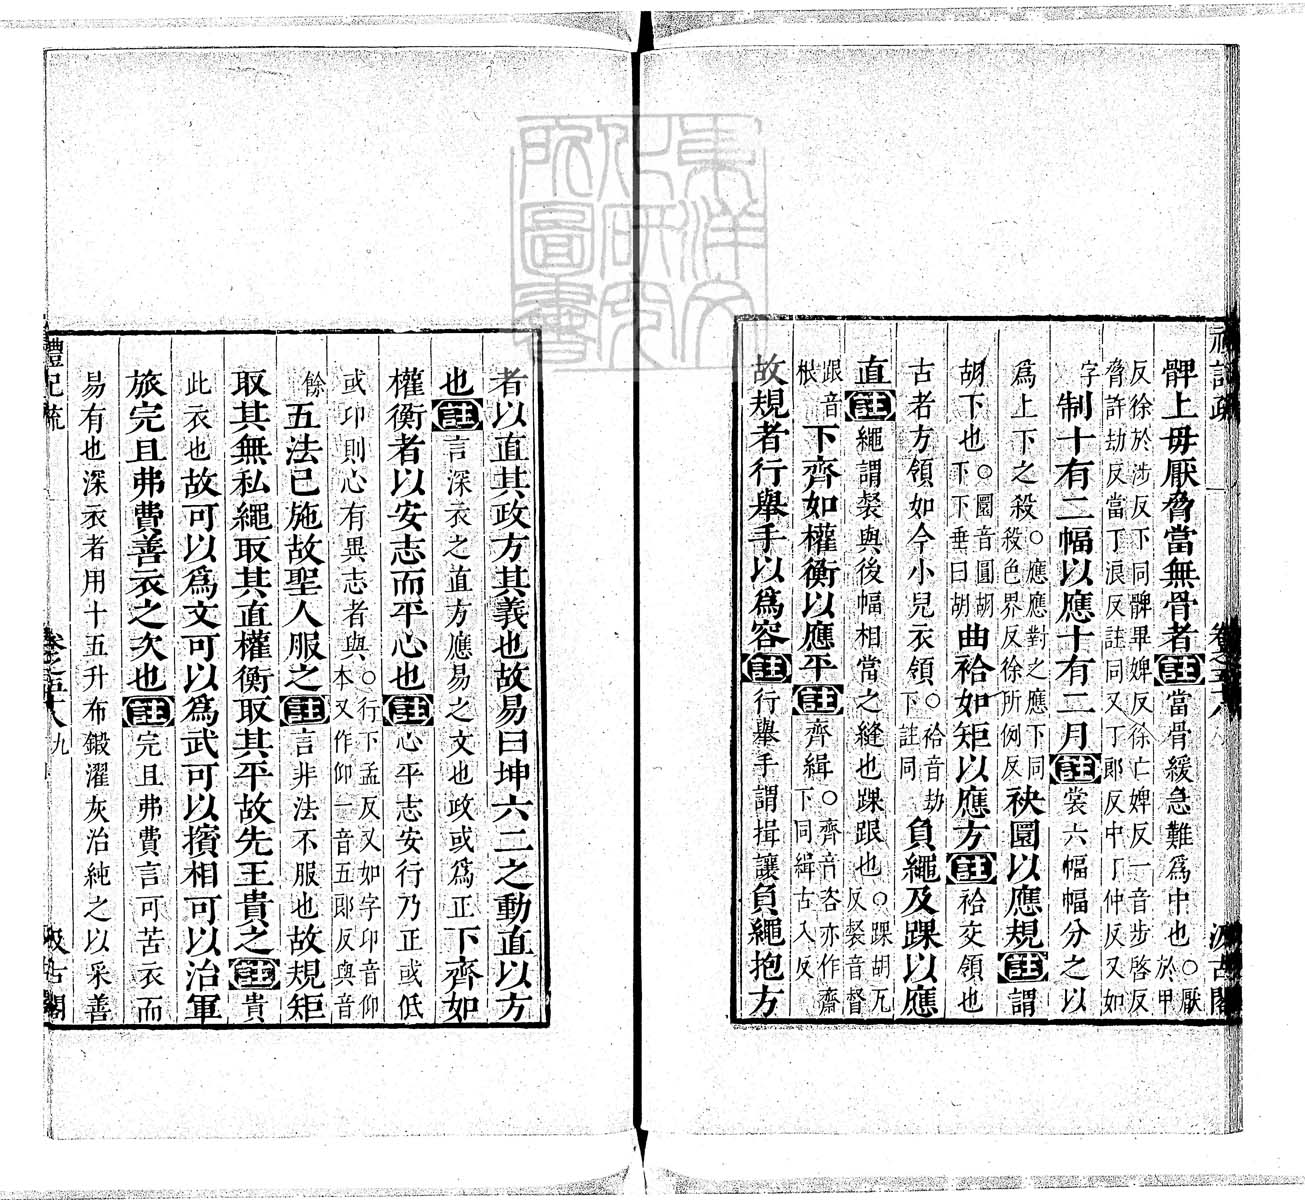 髀上毋厭脅當無骨者註當骨緩急難爲中也○厭於甲
反徐於涉反下同髀畢婢反徐亡婢反一音步啓反
脅許劫反當丁浪反註同又丁郎反中丁仲反又如
字制十有二幅以應十有二月註裳六幅幅分之以
爲上下之殺○應應對之應下同殺色界反徐所例反袂圜以應規註謂
胡下也○圜音圓胡下下垂曰胡曲袷如矩以應方註袷交領也
古者方領如今小兒衣領○袷音劫下註同負繩及踝以應
直註繩謂裻與後幅相當之縫也踝跟也○踝胡瓦反裻音督
跟音根下齊如權衡以應平註齊緝○齊音咨亦作齋下同緝古入反
故規者行舉手以爲容註行舉手謂揖讓負繩抱方
者以直其政方其義也故易曰坤六二之動直以方
也註言深衣之直方應易之文也政或爲正下齊如
權衡者以安志而平心也註心平志安行乃正或低
或卬則心有異志者與○行下孟反又如字卬音仰本又作仰一音五郎反與音
餘五法已施故聖人服之註言非法不服也故規矩
取其無私繩取其直權衡取其平故先王貴之註貴
此衣也故可以爲文可以爲武可以擯相可以治軍
旅完且弗費善衣之次也註完且弗費言可苦衣而
易有也深衣者用十五升布鍛濯灰治純之以采善
禮記疏
卷之五十八
九
汲古閣